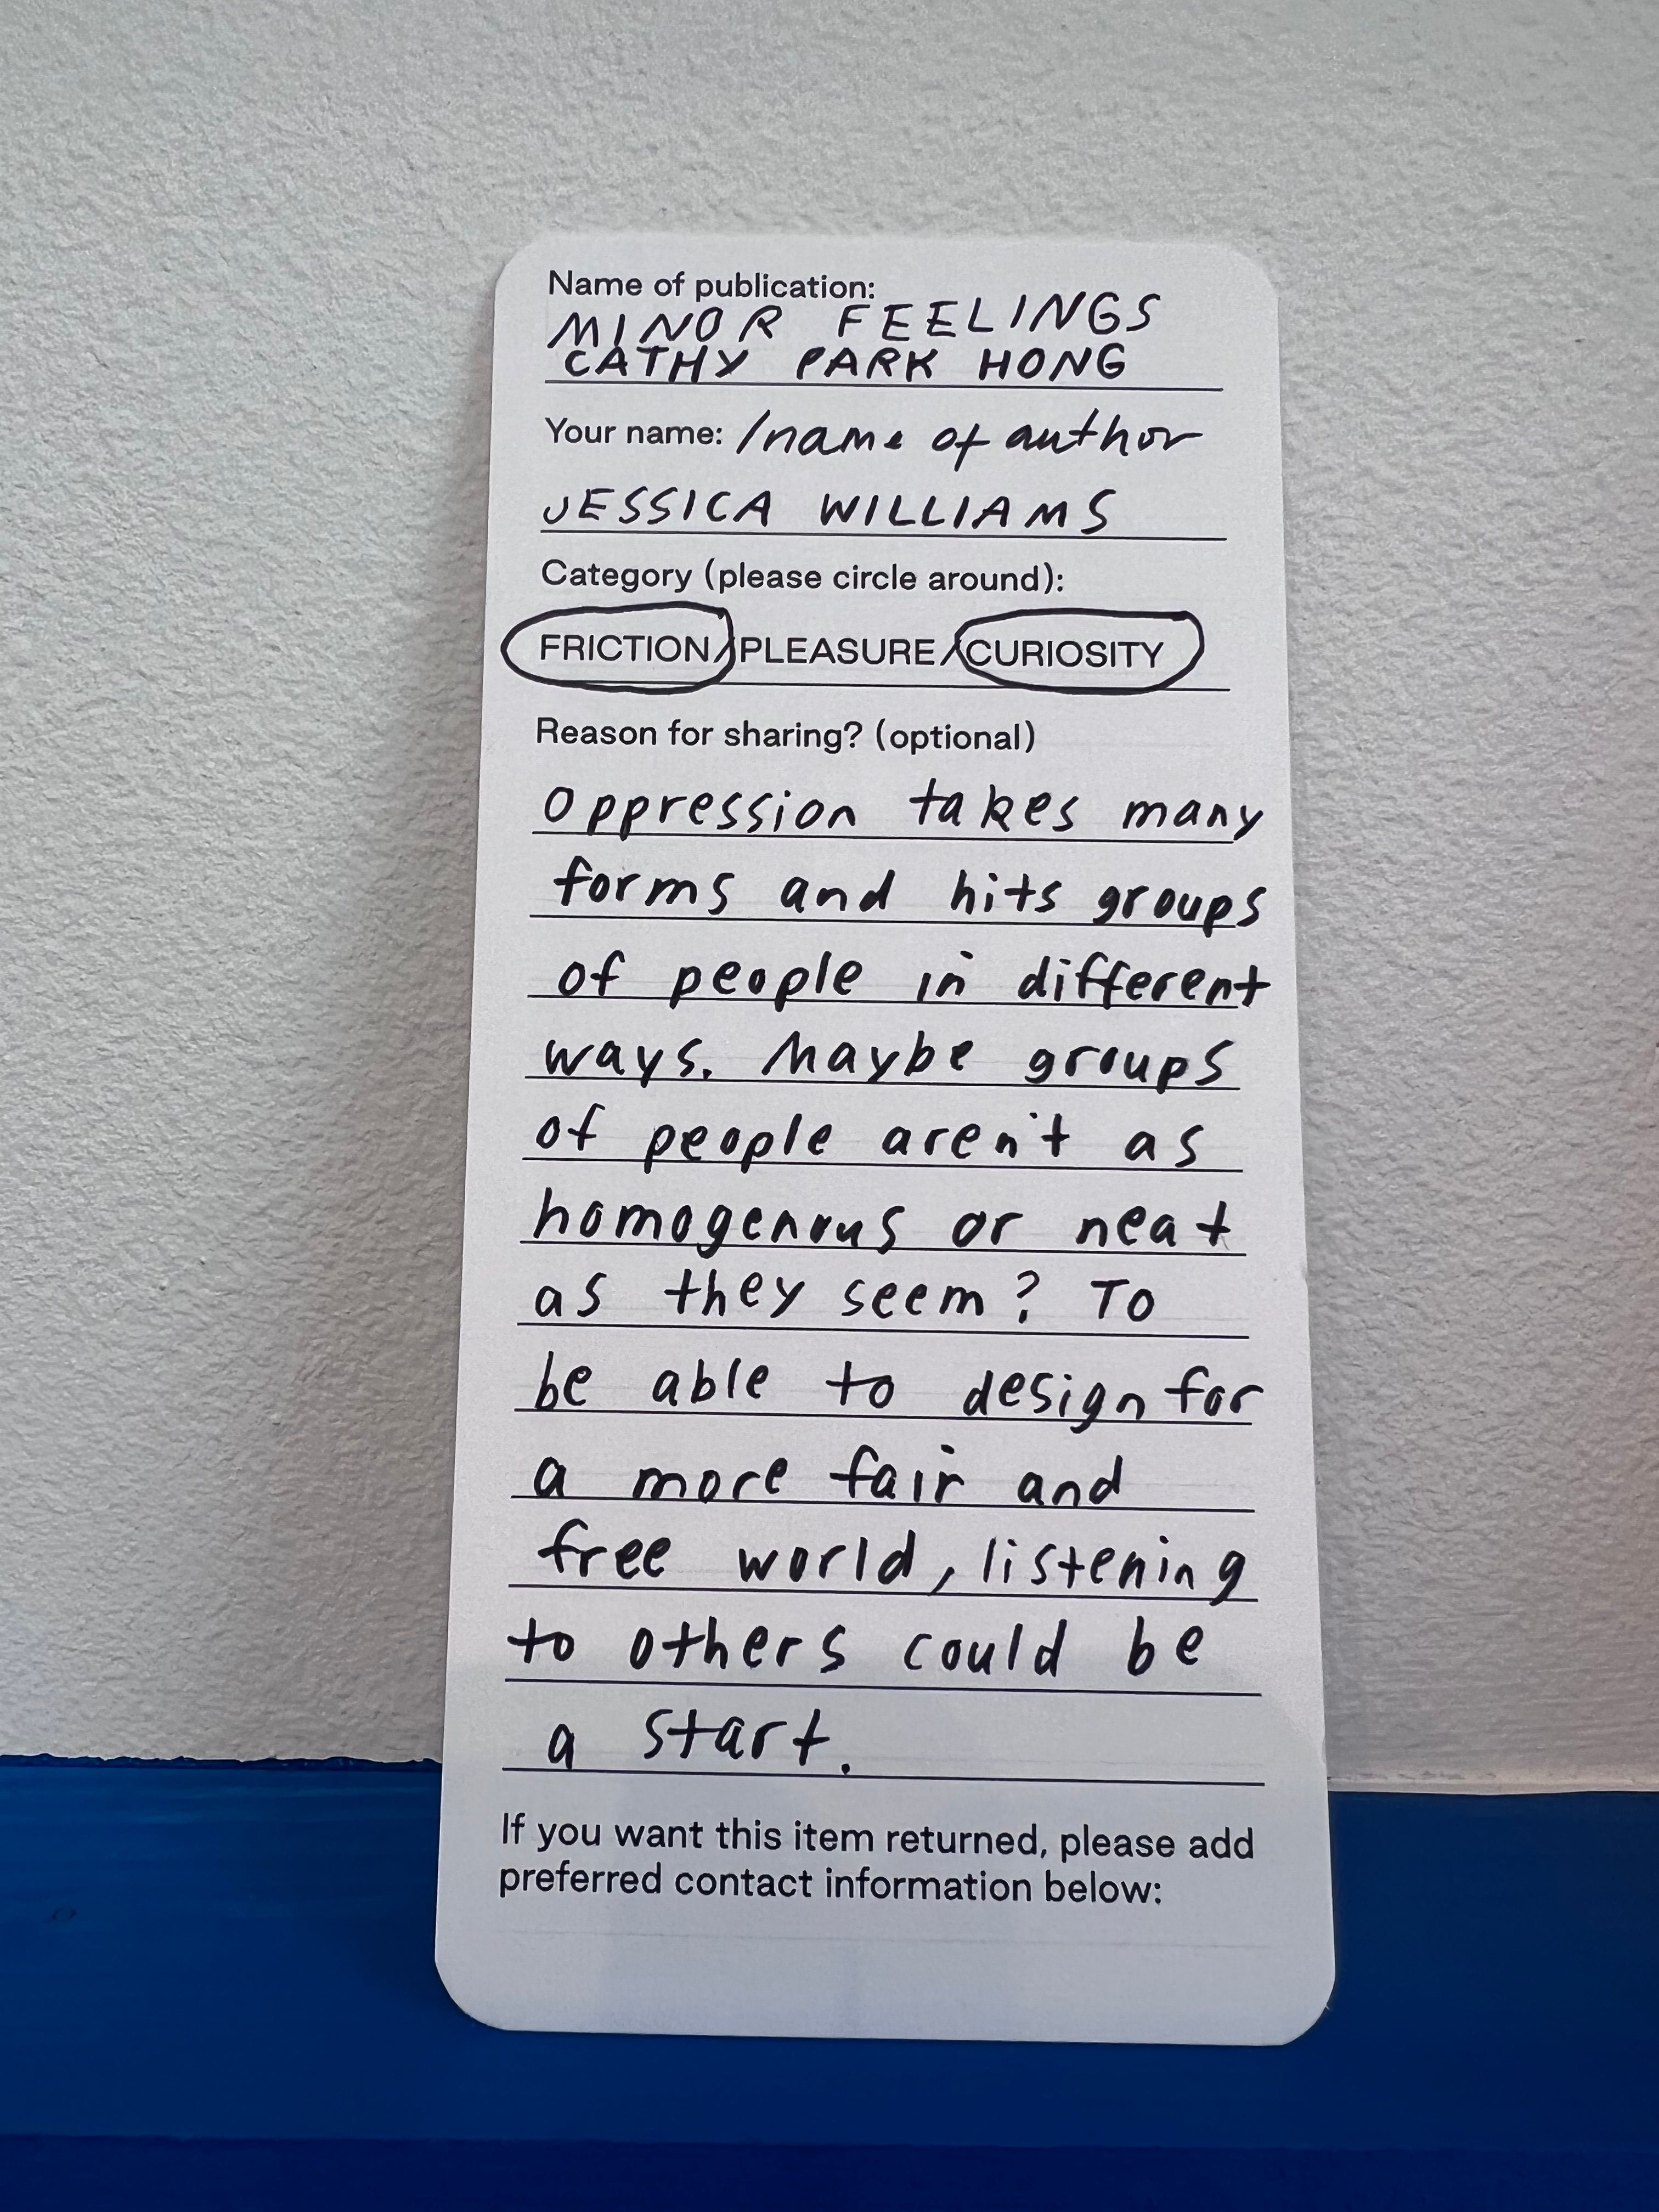 Name of publication:
MINOR FEELINGS
CATHY PARK HONG
Your name: /name of author
JESSICA WILLIAMS
Category (please circle around):
FRICTION/PLEASURE/CURIOSITY
Reason for sharing? (optional)
Oppression takes many
forms and hits groups
of people in different
ways. Maybe groups
of people aren't as
homogenous or neat
as they seem? To
be able to design for
a more fair and
free world, listening
to others could be
a start.
If you want this item returned, please add
preferred contact information below: